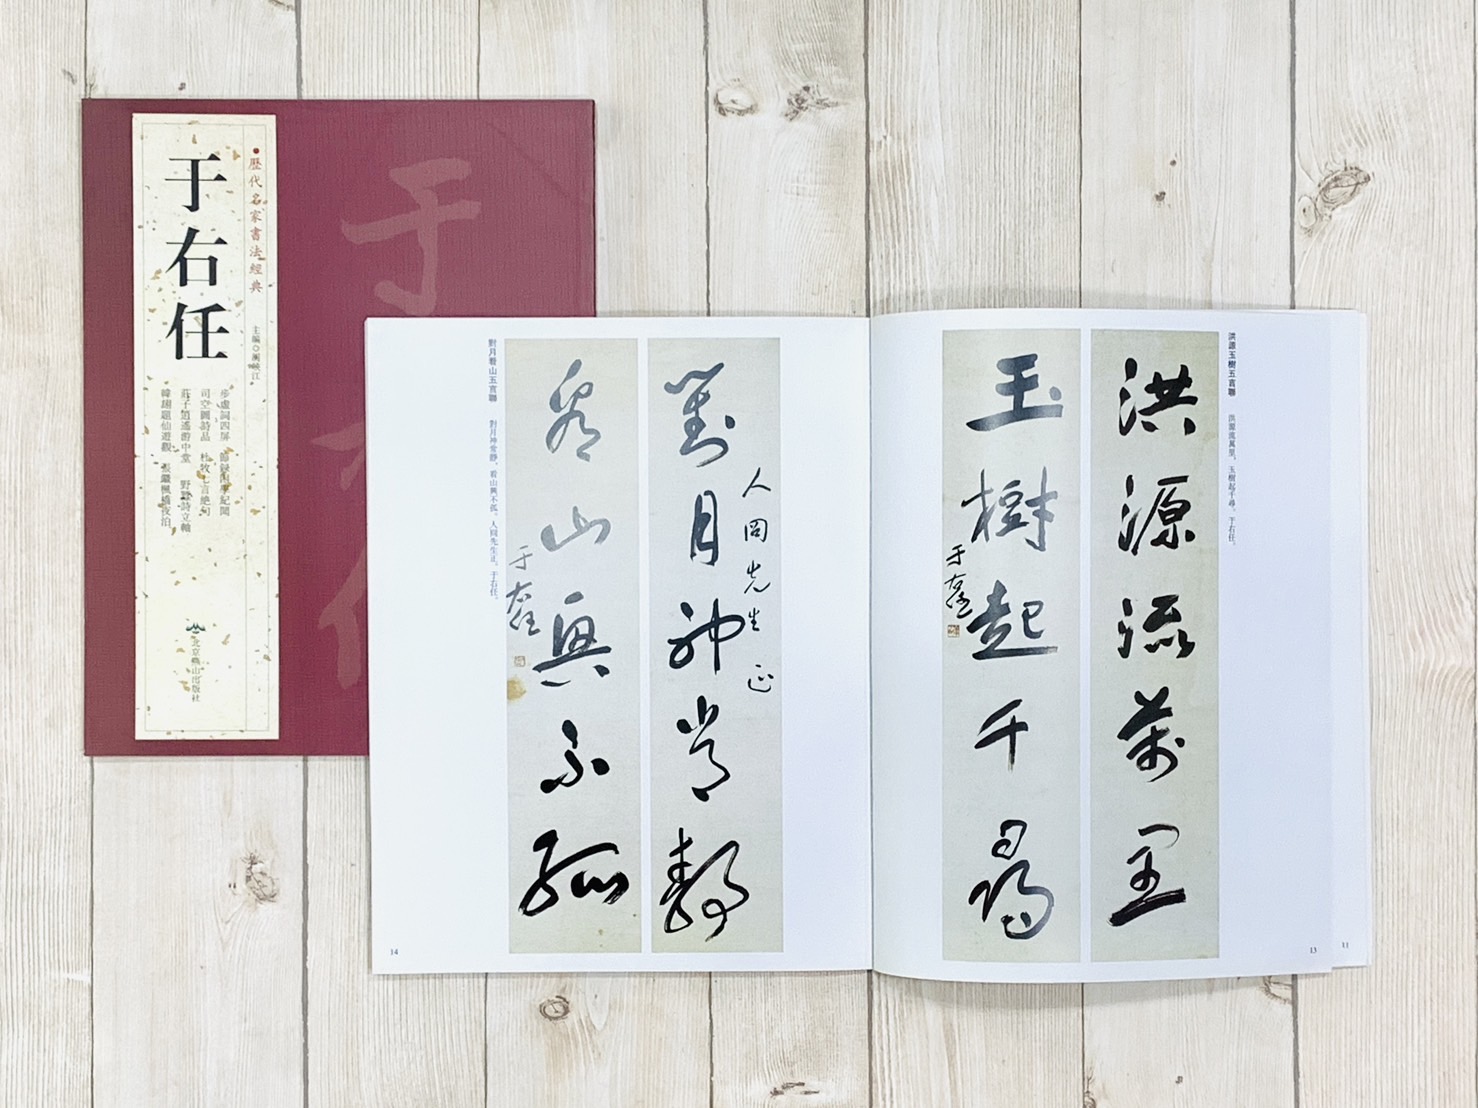 歷代名家書法經典
于右任
主編
步虛詞四屏
司空圖詩品 杜牧七言絶句
莊子逍遙游中堂 野歌詩立軸
韓翃題仙遊觀 張繼楓橋夜泊
北京燕山出版社
洪源玉樹五言聯 洪源流萬里，玉樹起千尋。于右任。
洪源流萬里
玉樹起千尋
于右任
13
11
人岡先生 正
對月神常靜
看山興不孤
于右任
對月看山五言聯 對月神常靜，看山興不孤。人岡先生正，于右任。
14